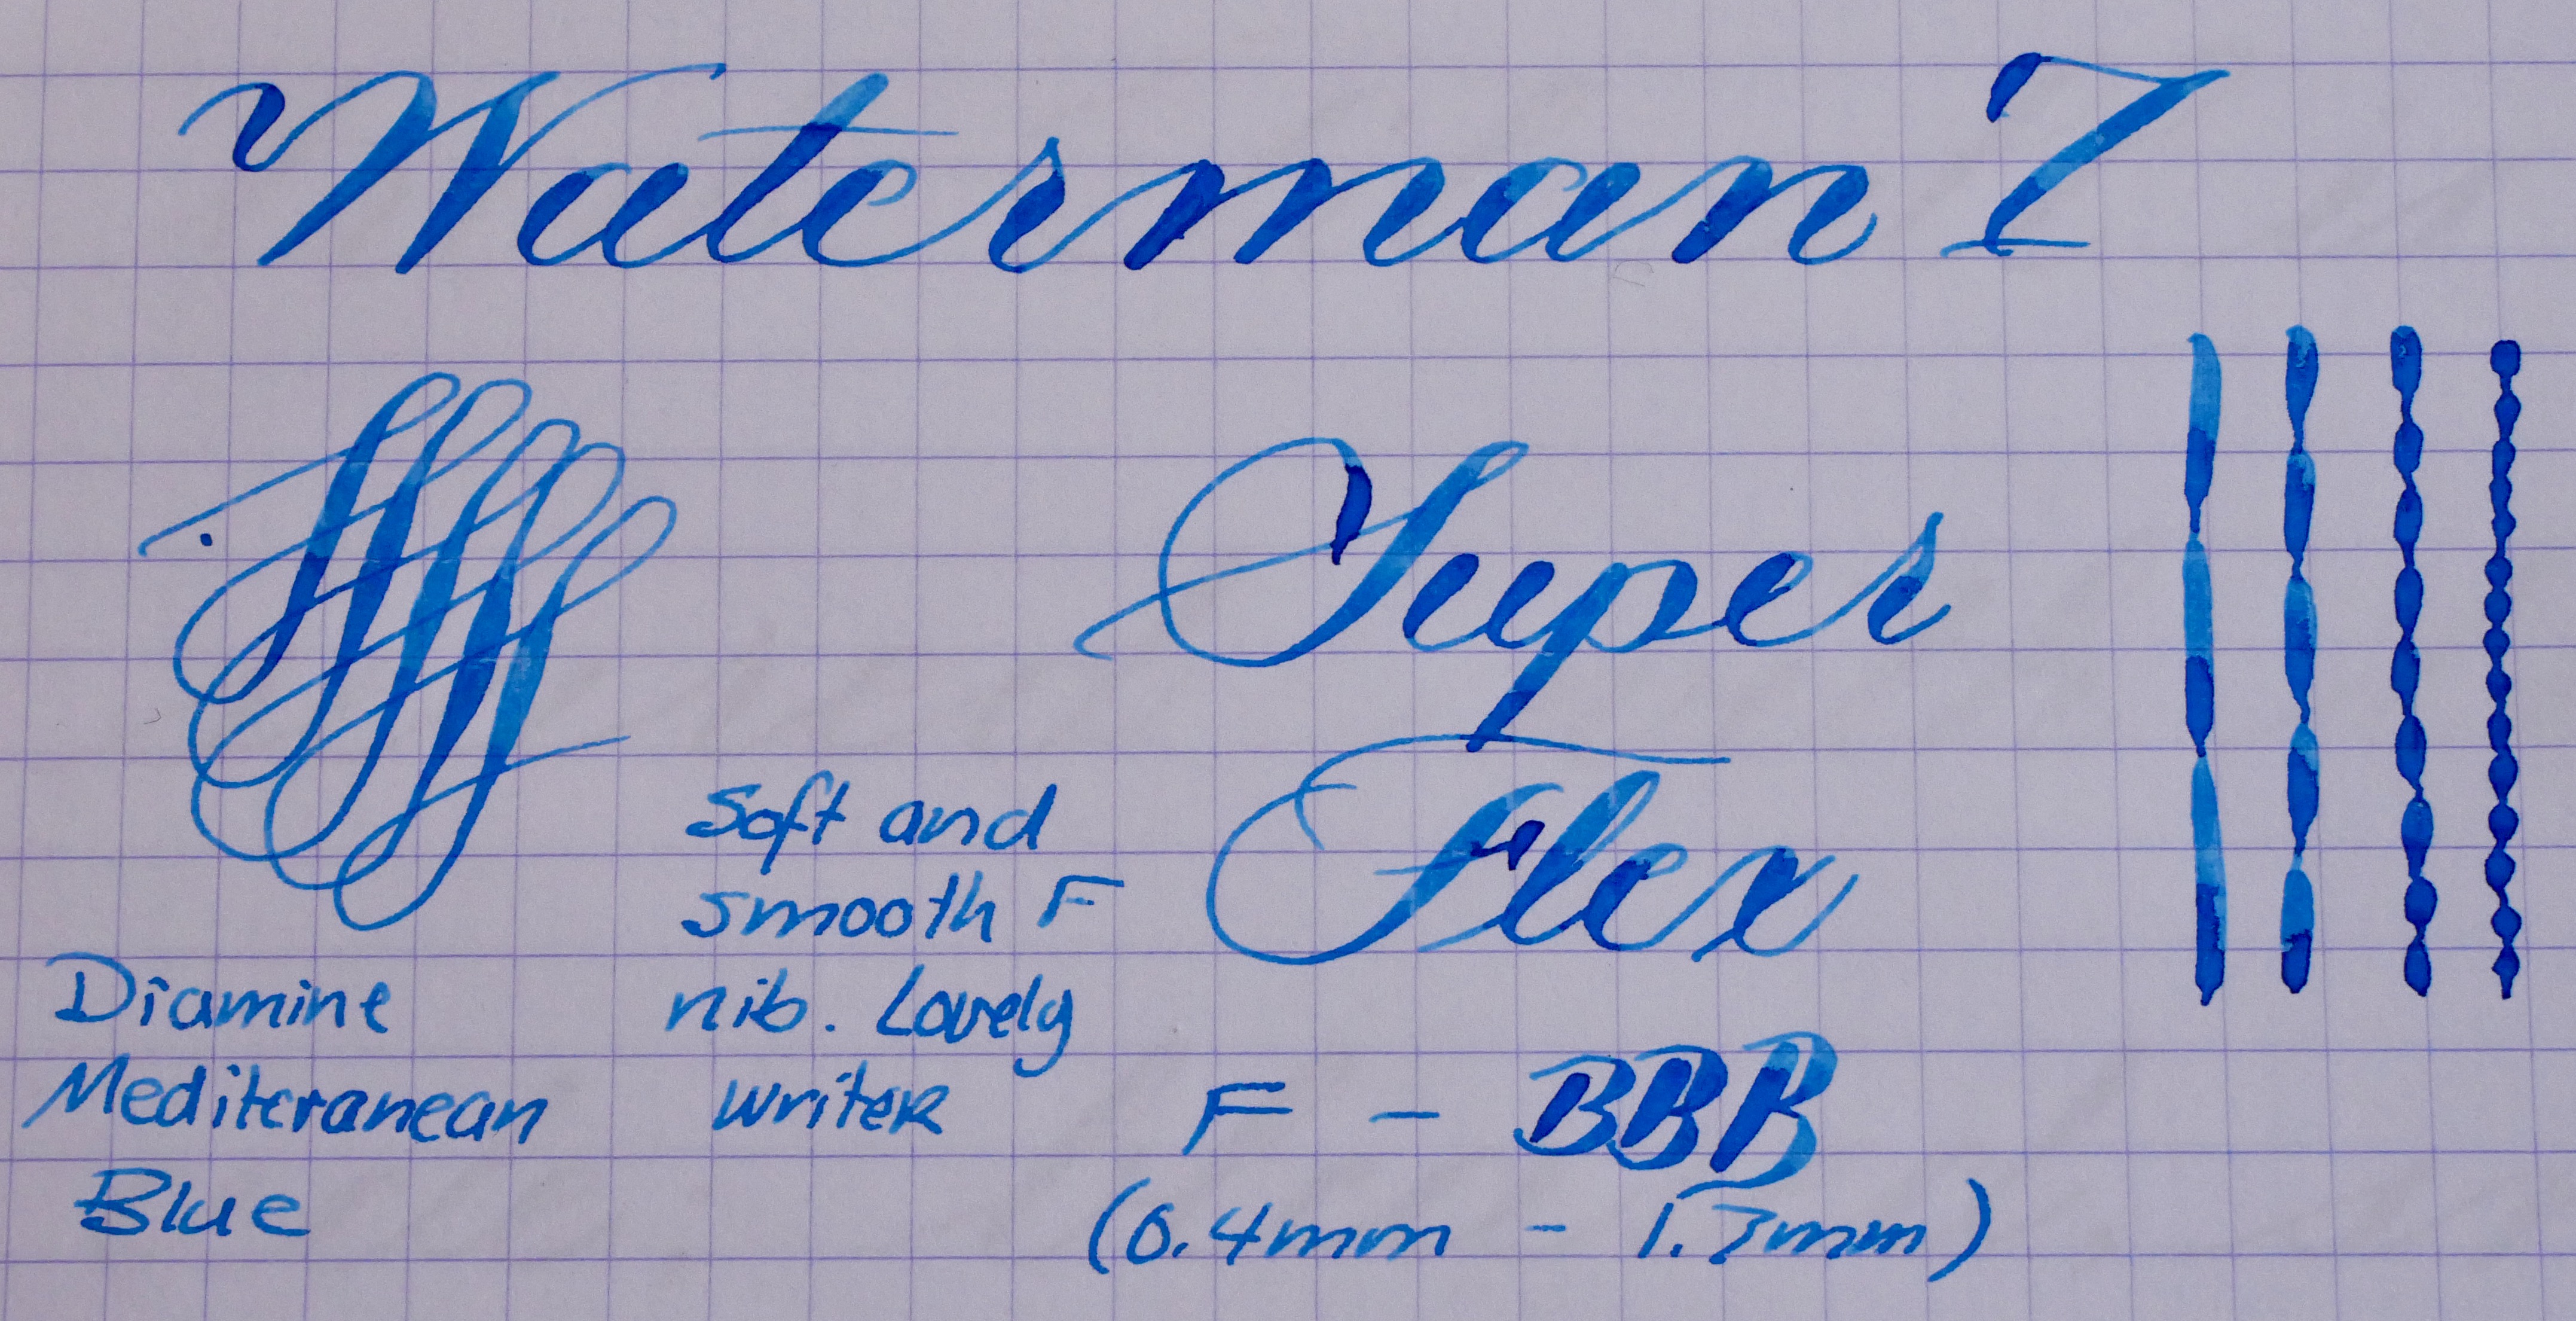 Waterman 7
Super
Flex
Soft and
smooth F
nib. Lovely
writer
Diamine
Mediteranean
Blue
F - BBB
(0.4mm - 1.7mm)